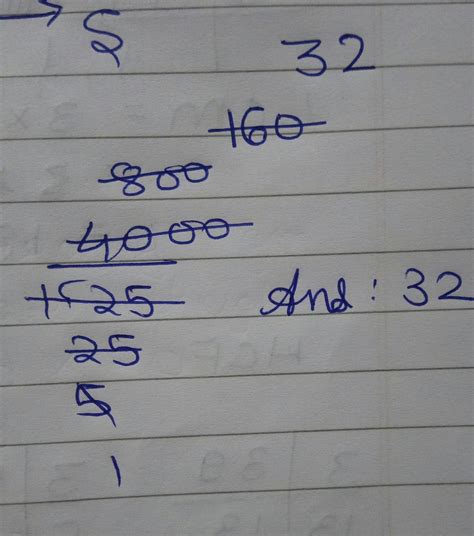 → S 32
160
800
4000
125 Ans: 32
25
5
1